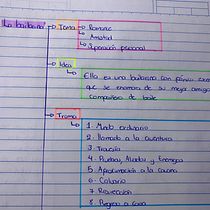 "La bailarina"
Tema
Romance
Amistad
Superación personal
Idea
Ella es una bailarina con
que se enamora de su mejor amigo
compañero de baile
Trama
1. Mundo ordinario
2. Llamado a la aventura
3. Travesía
4. Pruebas, Aliados y Enemigos
5. Aproximación a la caverna
6. Calvario
7. Resurrección
8. Regreso a casa